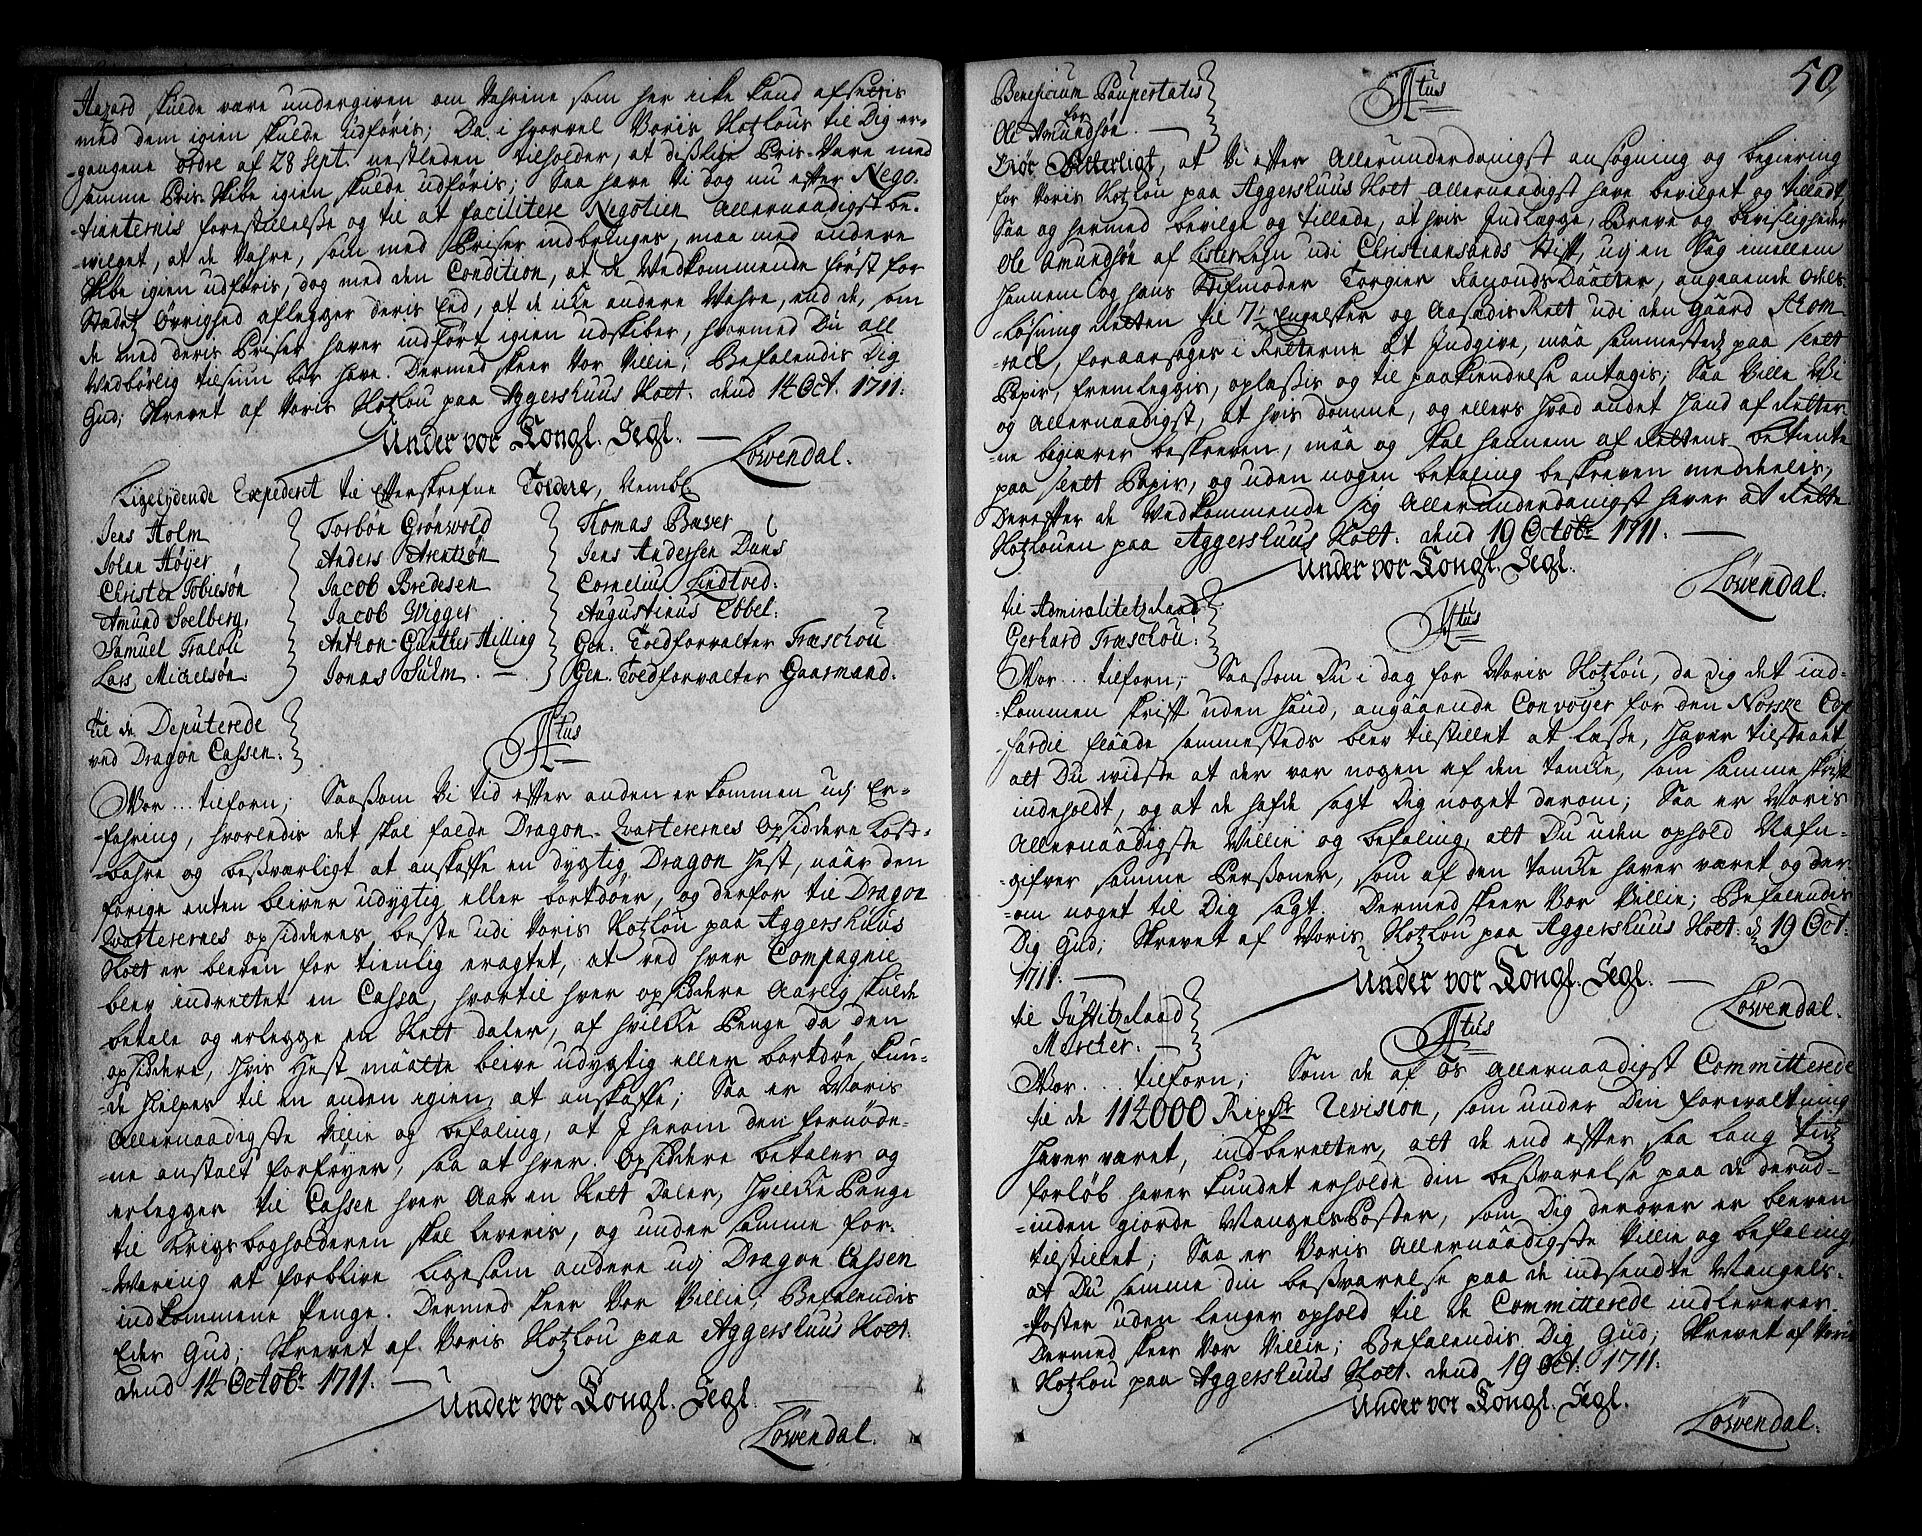 Hazard skulde være undergiven om Vahrene som her icke kand afsettis
med dem igien skulde udføris; Da i hvorvel Voris Slotzlous til Dig er-
-gangene ordre af 28 Sept. nestleden tilholder, at deßlige Pris-Vare med
samme Pris-Skibe igien skulde udføris; Saa have Vi dog nu efter Nego-
-tianternis forestillelße og til at facilitere Negotien Allernaadigst be-
-vilget, at de Vahre, som med Priser indbringes, maa med andere
Skibe igien udføris, dog med den Condition, at de Vedkommende først for
Stædetz Øvrighed aflegger deris Eed, at de icke andere Vahre, end de, som
de med deris Priser haver indført igien udskiber, hvormed Du all
Vedbørlig tilsiun bør have. Dermed skeer Vor Villie, Befalendis Dig
Gud; Skrevet af Voris Slotzlou paa Aggershuus Slott. dend 14 Oct. 1711.
Under vor Kongl. Segl. —
Løvendal.
Ligelydende Expederet til Efterskrefne Toldere, Nembl
Jens Holm
Johan Høyer
Christen Tobiesøn
Amund Soelberg,
Samuel Tralou
Lars Michelsøn.
Torbøn Grønvold
Anders Arentzøn
Jacob Bredesen
Jacob Wigger
Anthon Günther Hilling
Jonas Sulm. —
Thomas Buver
Jens Andersen Dans
Cornelius Lindtved.
Augustinus Cobbel.
Gen. Toldforvalter Træschou
Gen. Toldforvalter Gaarmand.
Til de Deputerede
ved Dragon Cassen.
Ftus
Vor... tilforn; Saaßom Vi tid efter anden er kommen udj Er-
-fahring, hvorledis det skal falde Dragon-Qvarterernes Opsiddere kost-
-bahre og beßværligt at anskaffe en dygtig Dragon Hest, naar den
forige enten bliver udygtig eller bortdøer, og derfor til Dragon
Qvarterernes opsidderes beste udi Voris Slotzlou paa Aggershuus
Slott er bleven for tienlig eragtet, at ved hver Compagnie
blev indrettet en Cassa, hvortil hver opsiddere Aarlig skulde
betale og erlegge en Slett daler, af hvilcke Penge da den
opsiddere, hvis Hest maatte blive udygtig eller bortdøe, kun-
-de hielpes til en anden igien at anskaffe; Saa er Voris
Allernaadigste Villie og befaling, at I herom den fornøde-
-ne anstalt forføyer, saa at hver Opsiddere betaler og
erlegger til Cassen hver Aar en Slett Daler, hvilcke Penge
til Krigsbogholderen skal leveris, og under samme for-
-Varing at forblive ligesom andere udj Dragon Cassen
indkommene Penge. Dermed skeer Vor Villie, Befalendis
Eder Gud; Skrevet af Voris Slotzlou paa Aggershuus Slott.
dend 14 Octobr 1711. —
Under vor Kongl. Segl.
Løvendal.
50,
Beneficium Paupertatis
for
Ole Amundsøn. —
Ftus
Giør Vitterligt, at Vi efter Allerunderdanigst ansøgning og begiering
for Voris Slotzlou paa Aggershuus Slott Allernaadigst have bevilget og tilladt,
Saa og hermed bevilge og tillade, at hvis Indlægge, Breve og bevisligheder
Ole Amundsøn af Lister Lehn udi Christiansands Stift, udj en Sag imellem
hannem og hans Stifmoder Torgier Samonds Daatter, angaaende Odels-
løsning Retten til 7½ Engelsker og Aasædis Rett udi den gaard Strom
-rad, foraarsages i Retterne at Indgive, maa sammestedz paa slett
Papir, fremleggis, oplæßis og til paakiendelse antagis; Saa Ville Wi
og Allernaadigst, at hvis domme, og ellers hvad andet Hand af Retter-
-ne begierer beskreven, maa og skal hannem af Rettens betiente
paa slett Papir, og uden nogen betaling beskreven meddeelis,
Derefter de Vedkommende sig Allerunderdanigst haver at Rette
Slotzlouen paa Aggershuus Slott. dend 19 Octobr 1711. —
Under vor Kongl. Segl.
Løvendal.
Til Admiralitetz Raad
Gerhard Træschou.
Ftus
Vor... tilforn; Saaßom Du i dag for Voris Slotzlou, da dig det ind-
-kommen skrift uden Haand, angaaende Convoyer for den Norske Cof
fardie flaade sammesteds blev tilstillet at læße, haver tilstaaet
att Du vidste at der var nogen af den tancke, som samme skrift
indeholdt, og at de hafde sagt Dig noget derom; Saa er Voris
Allernaadigste Villie og befaling, att Du uden ophold Nafn-
-gifver samme Perßoner, som af den tancke haver været og der-
-om noget til Dig sagt. Dermed skeer Vor Villie; Befalendis
Dig Gud; Skrevet af Voris Slotzlou paa Aggershuus Slott. d. 19 Oct.
1711. —
Under vor Kongl. Segl. —
Løvendal.
Til Justitz Raad
Mercher. —
Ftus
Vor... tilforn; Som de af os Allernaadigst Committerede
til de 112000 Rixdlr Revision, som under Din forevaltning
haver været, indberetter, att de end efter saa lang tidz
forløb haver kundet erholde din beßvarelse paa de derud-
-inden giorde Mangels Poster, som Dig derover er bleven
tilstillet; Saa er Voris Allernaadigste Villie og befaling
at Du samme din beßvarelse paa de indsendte Mangels-
-Poster uden lenger ophold til de Committerede indleverer.
Dermed skeer Vor Villie; Befalendis Dig Gud; Skrevet af Voris
Slotzlou paa Aggershuus Slott. dend 19 Oct. 1711.
Under vor Kongl. Segl.
Løvendal.